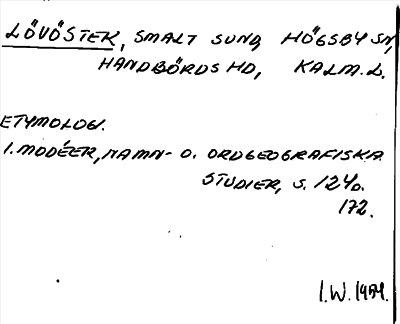 LÖVÖSTEK, SMALT SUND, HÖGSBY SN,
HANDBÖRDS HD, KALM. L.
ETYMOLOGI.
I. MODÉER, NAMN- O. ORDGEOGRAFISKA
STUDIER, S. 124 O.
172.
I.W. 1954.